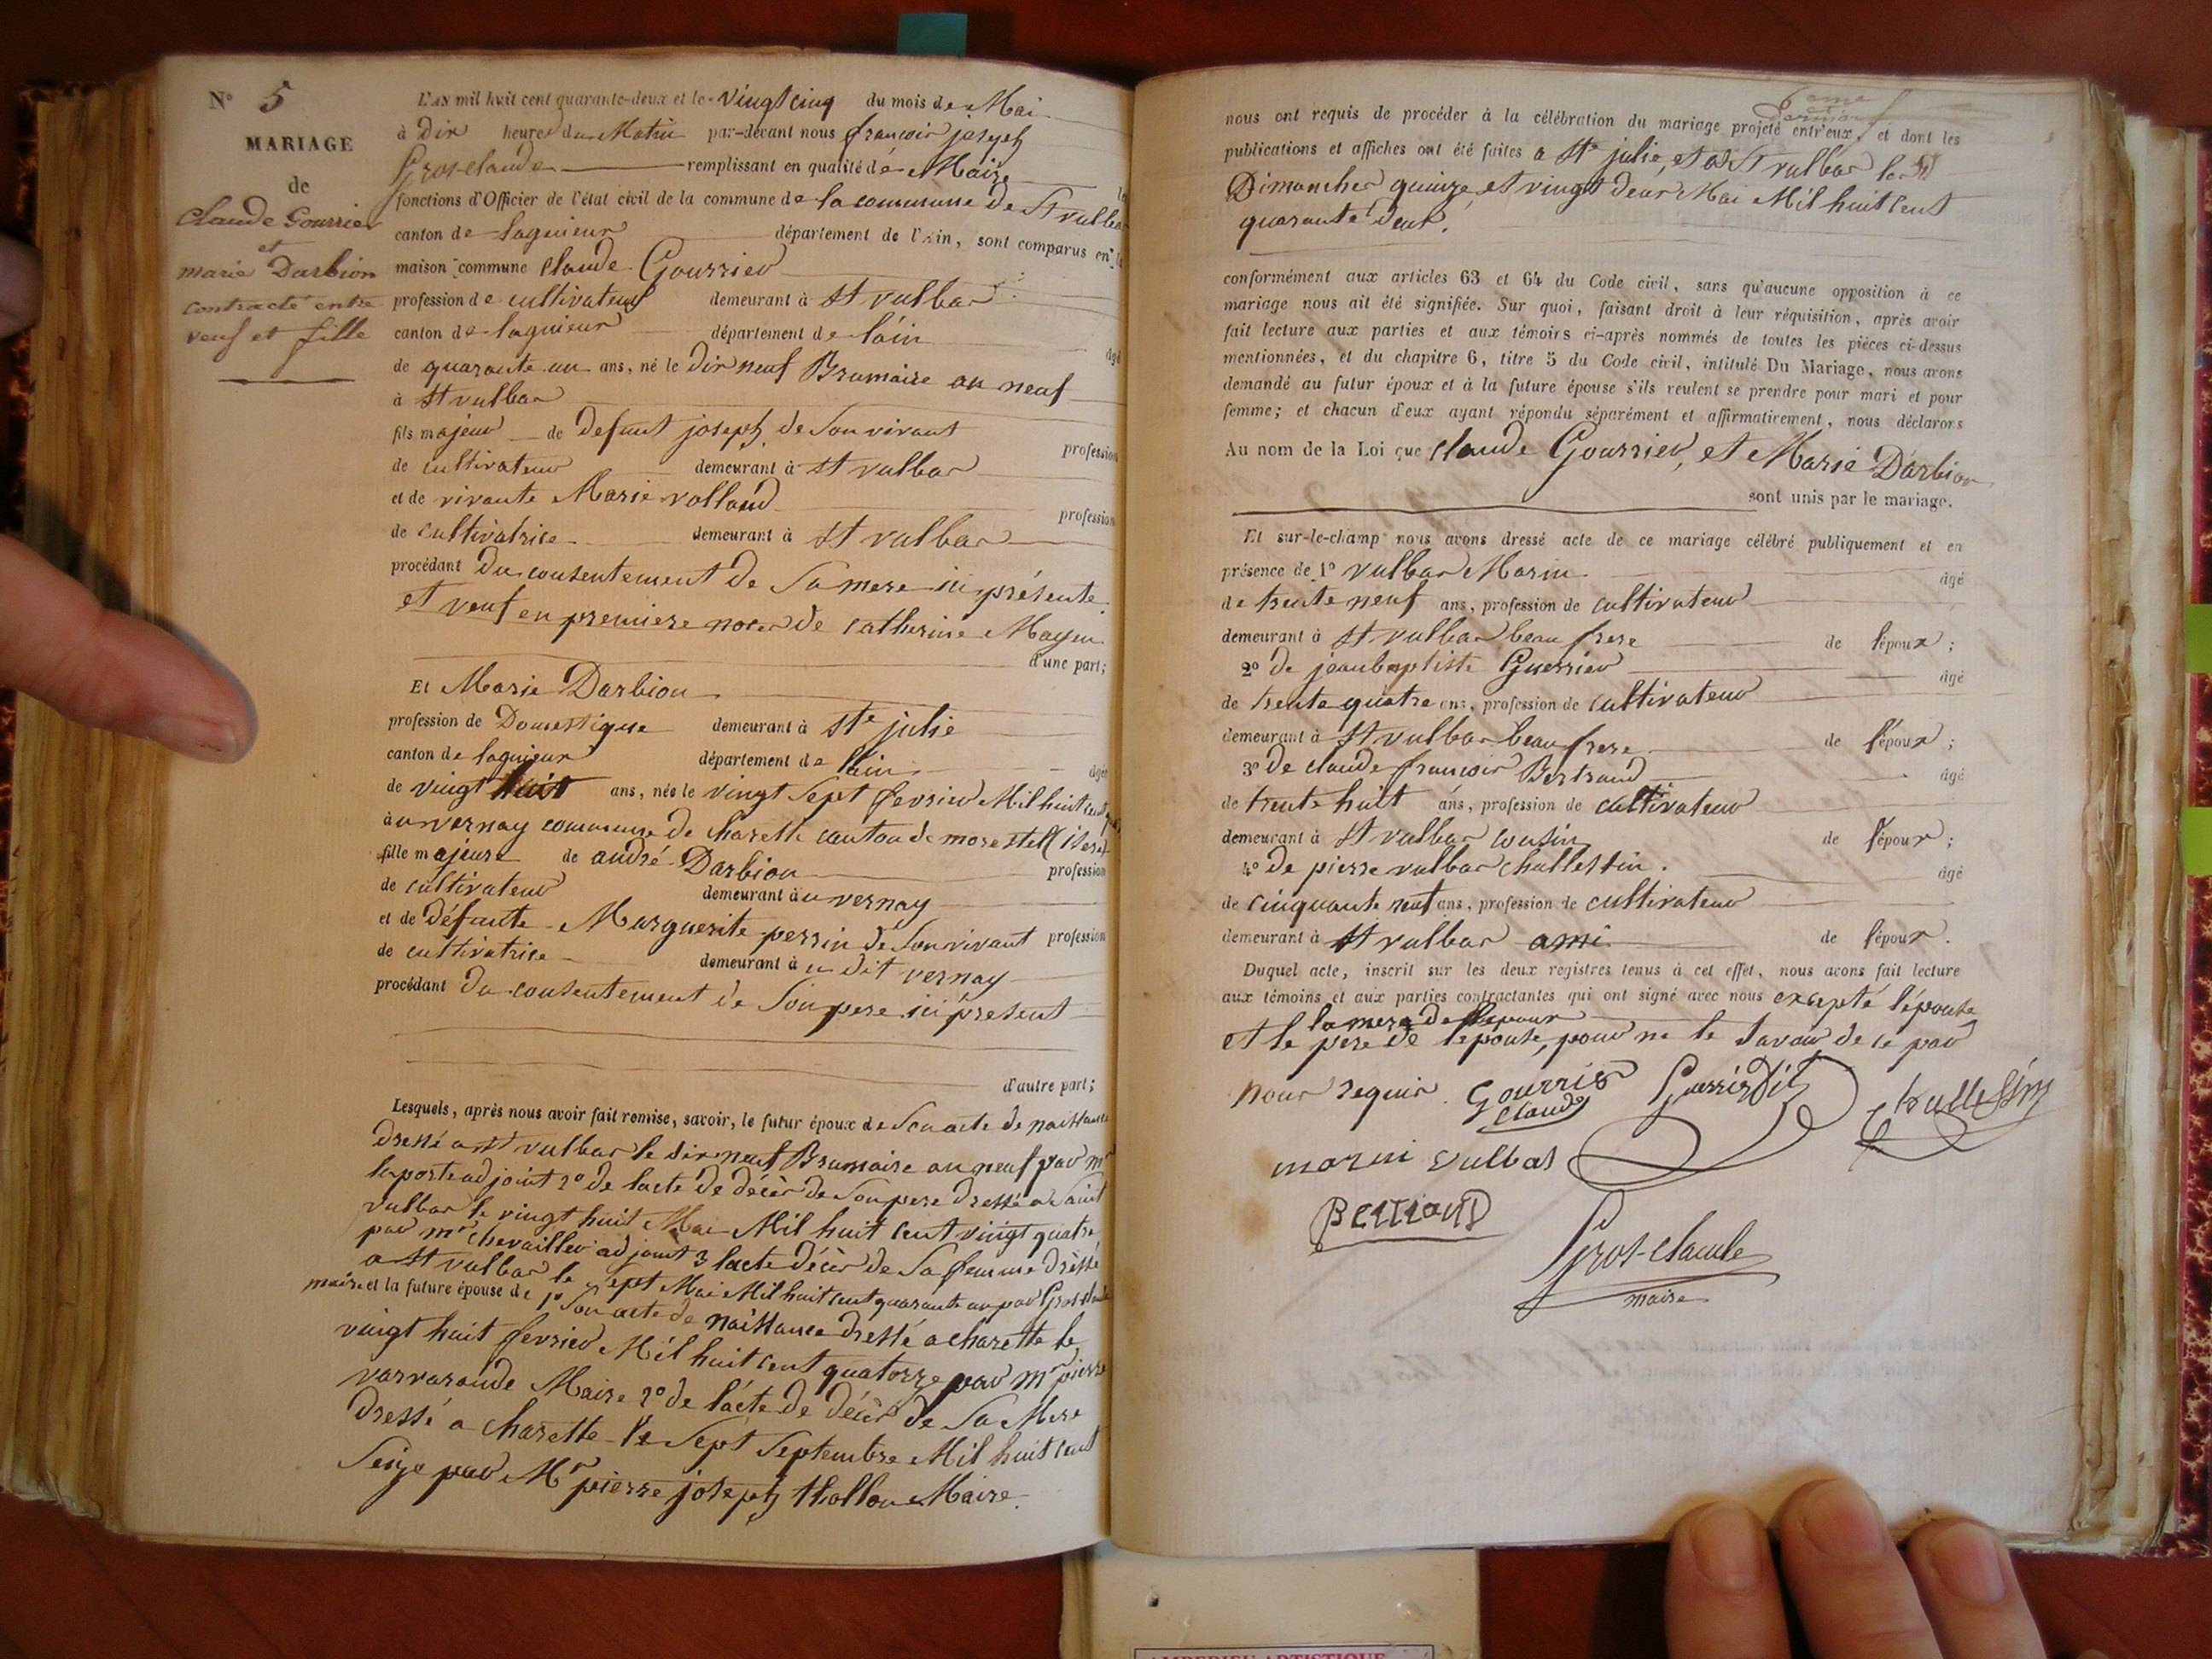 N° 5
MARIAGE
de
Claude Gourrier
et
marie Darbion
contracté entre
veuf et fille
L'AN mil huit cent quarante-deux et le vingt cinq du mois de Mai
à dix heures du Matin par-devant nous françois joseph
Gros-claude remplissant en qualité de Maire
fonctions d'Officier de l'état civil de la commune de la commune de St vulbas
canton de lagnieur département de l'Ain, sont comparus en la
maison commune Claude Gourrier
profession de cultivateur demeurant à St vulbas
canton de lagnieur département de l'ain
âgé
de quarante un ans, né le dix neuf Brumaire an neuf
à St vulbas
fils majeur de defunt joseph de Son vivant
profession
de cultivateur demeurant à St vulbas
et de vivante Marie volland
profession
de cultivatrice demeurant à St vulbas
procédant du consentement de Sa mere ici présente
et veuf en premiere noces de catherine Mayen
d'une part;
Et Marie Darbion
profession de Domestique demeurant à Ste julie
canton de lagnieur département de l'ain
âgée
de vingt huit ans, née le vingt Sept fevrier Mil huit cent
à au vernay commune de charette canton de morestel (isere)
fille majeure de andré Darbion
profession
de cultivateur demeurant à au vernay
et de défunte Marguerite perrin de Son vivant profession
de cultivatrice demeurant à u dit vernay
procédant du consentement de Son pere ici présent
d'autre part;
Lesquels, après nous avoir fait remise, savoir, le futur époux de Son acte de naissance
dressé a St vulbas le dix neuf Brumaire an neuf par mr
laporte adjoint 2° de lacte de décès de Son pere dressé a Saint
vulbas le vingt huit Mai Mil huit cent vingt quatre
par mr chevaillier adjoint 3 lacte décès de Sa femme dressé
a St vulbas le Sept Mai Mil huit cent quarante un par Gros claude
maire et la future épouse de 1° Son acte de naissance dressé a charette le
vingt huit fevrier Mil huit cent quatorze par mr pierre
varvarande Maire 2° de l'acte de décès de Sa Mere
dressé a charette le Sept Septembre Mil huit cent
Seize par Mr pierre joseph thollon Maire.
6eme
et
dernier f
nous ont requis de procéder à la célébration du mariage projeté entr'eux, et dont les
publications et affiches ont été faites a Ste julie, et a St vulbas les
Dimanches quinze, et vingt deux Mai Mil huit cent
quarante deux.
conformément aux articles 63 et 64 du Code civil, sans qu'aucune opposition à ce
mariage nous ait été signifiée. Sur quoi, faisant droit à leur réquisition, après avoir
fait lecture aux parties et aux témoins ci-après nommés de toutes les pièces ci-dessus
mentionnées, et du chapitre 6, titre 5 du Code civil, intitulé Du Mariage, nous avons
demandé au futur époux et à la future épouse s'ils veulent se prendre pour mari et pour
femme; et chacun d'eux ayant répondu séparément et affirmativement, nous déclarons
Au nom de la Loi que Claude Gourrier, et Marie Darbion
sont unis par le mariage.
Et sur-le-champ nous avons dressé acte de ce mariage célébré publiquement et en
présence de 1° vulbas Marin âgé
de trente neuf ans, profession de cultivateur
demeurant à St vulbas beau frere de l'époux;
2° de jean baptiste Guerrier âgé
de trente quatre ans, profession de cultivateur
demeurant à St vulbas beau frere de l'époux;
3° de claude françois Bertrand âgé
de trente huit ans, profession de cultivateur
demeurant à St vulbas cousin de l'époux;
4° de pierre vulbas challessin. âgé
de cinquante neuf ans, profession de cultivateur
demeurant à St vulbas ami de l'époux.
Duquel acte, inscrit sur les deux registres tenus à cet effet, nous avons fait lecture
aux témoins et aux parties contractantes qui ont signé avec nous excepté l'épouse
la mere de lepoux
et le pere de lepouse, pour ne le Savoir de ce par
nous requis. Gourrier Guerrier Dit Challessin
Claude
marin vulbas
Bertrand
Gros-claude
maire
AMBERIEU ARTISTIQUE